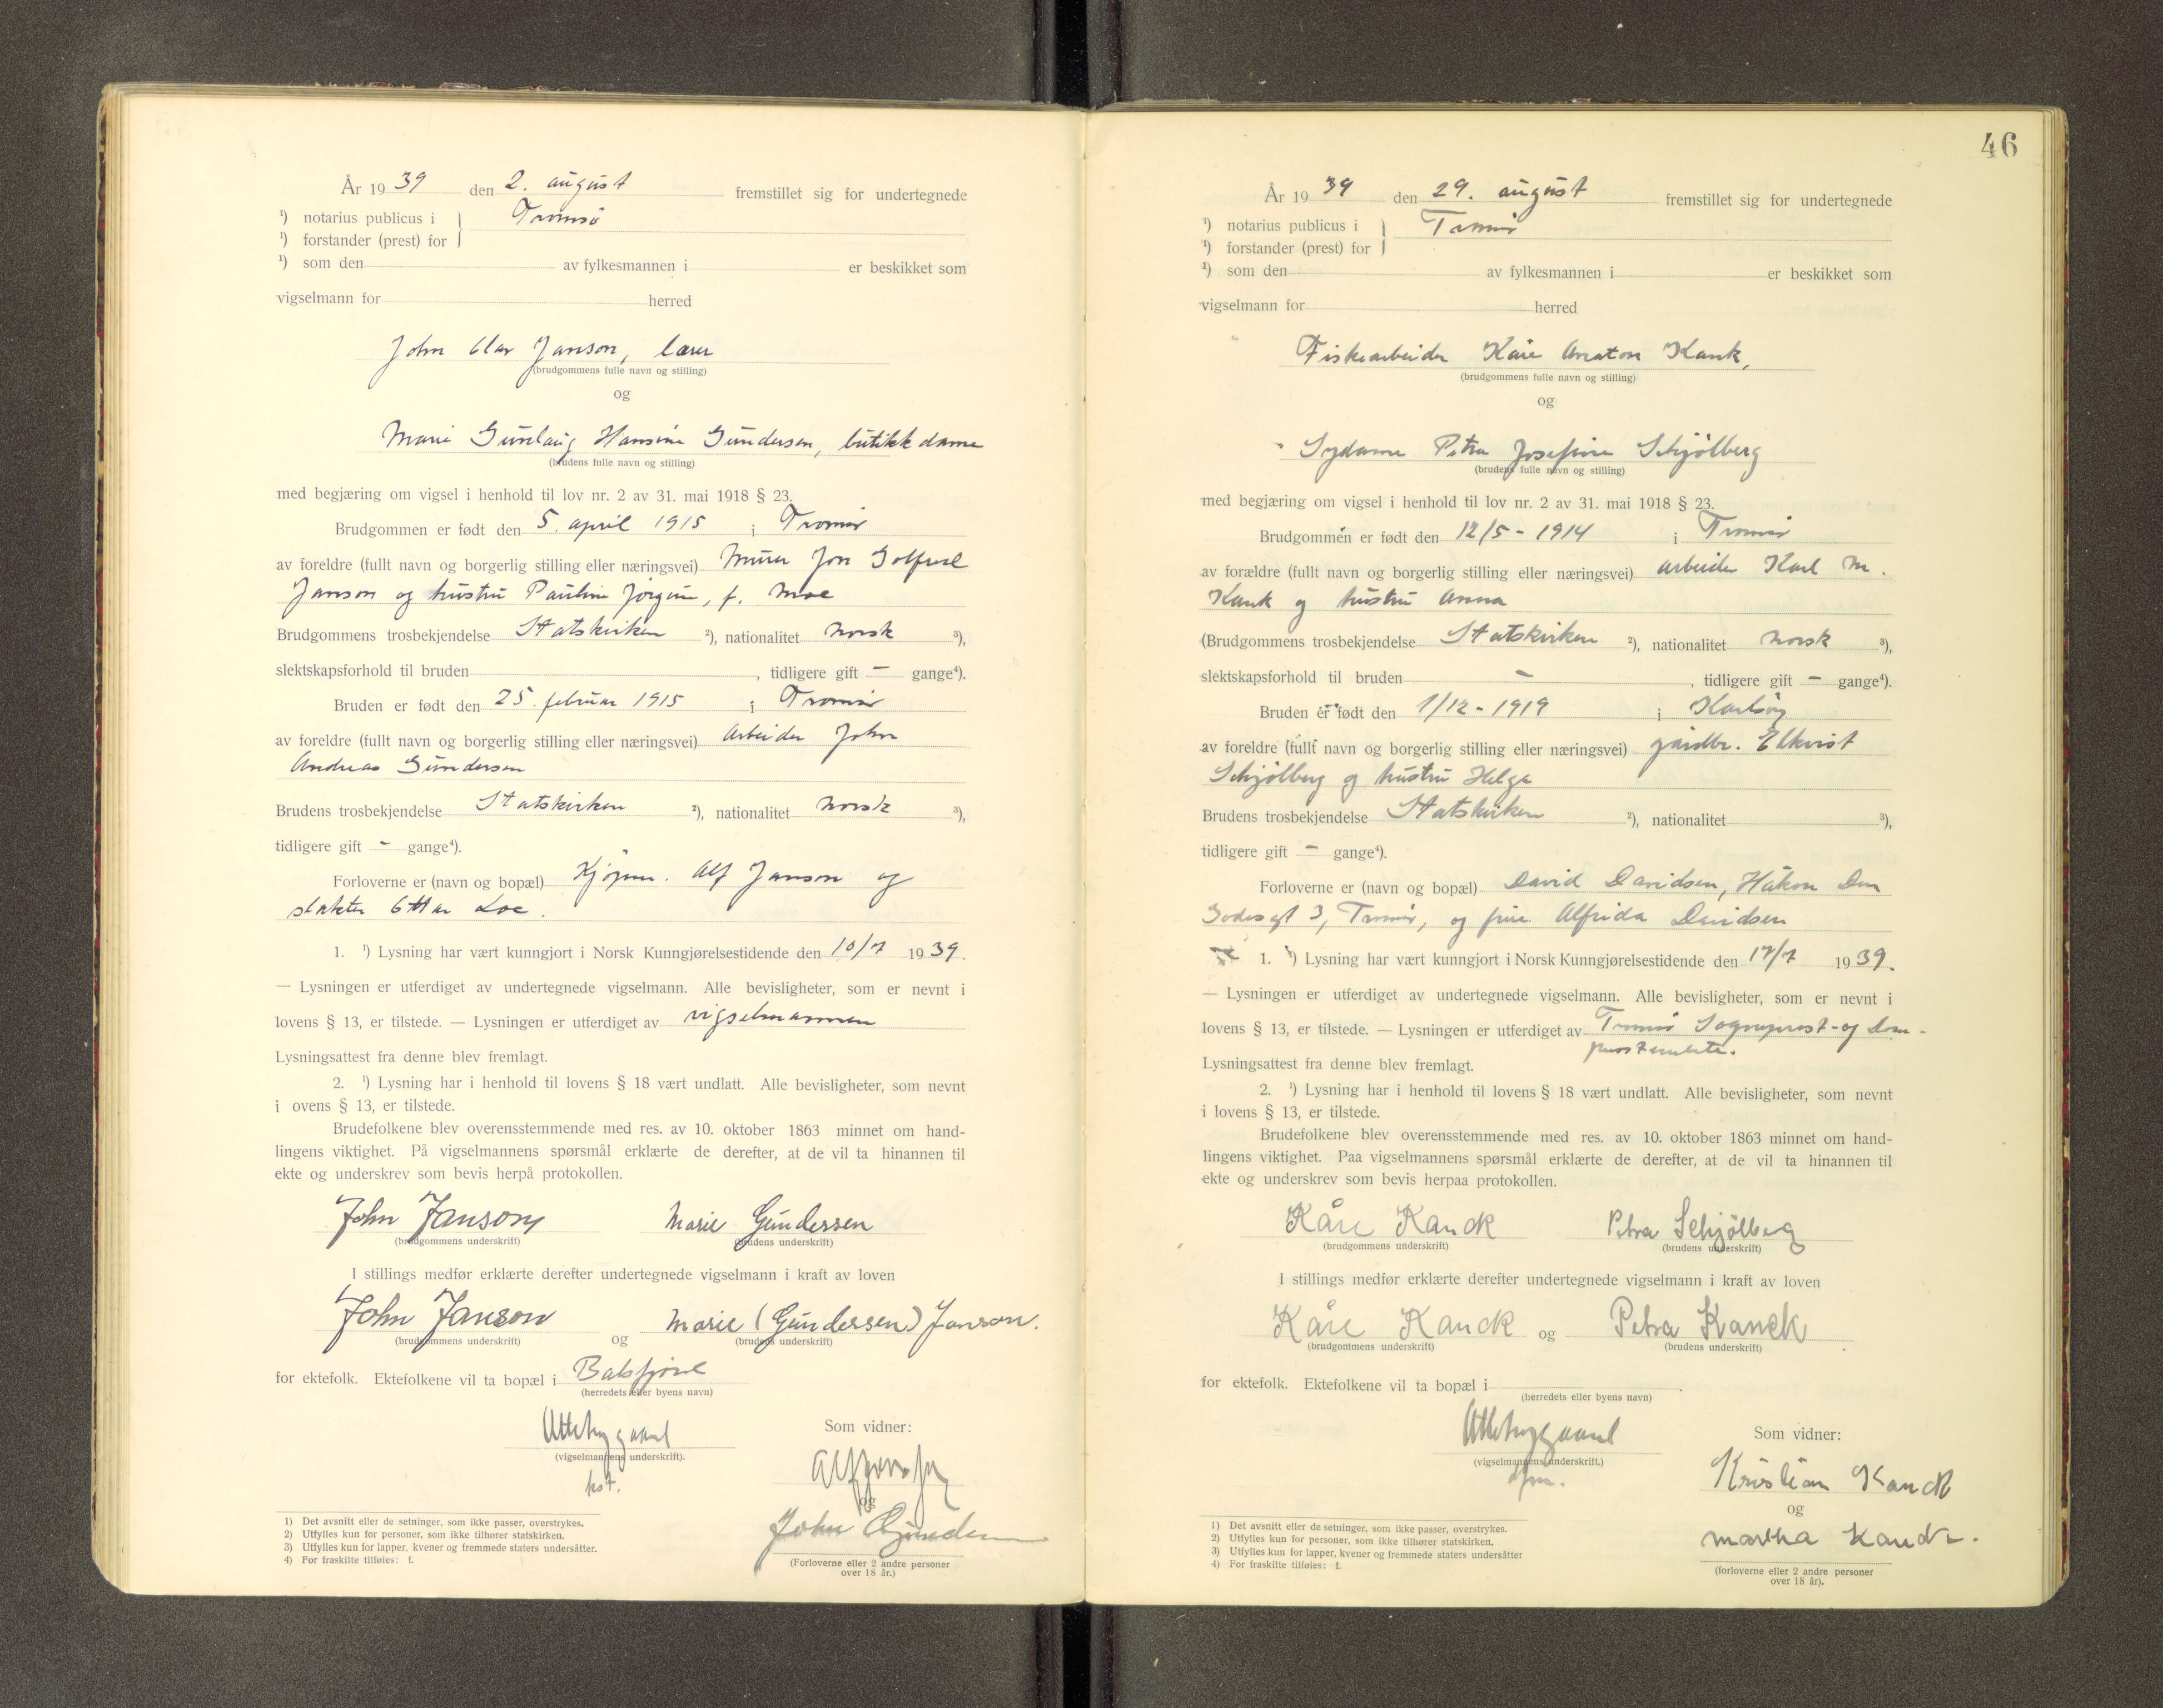 År 19 39 den 2. august fremstillet sig for undertegnede
¹) notarius publicus i } Tromsø
¹) forstander (prest) for
¹) som den av fylkesmannen i er beskikket som
vigselmann for herred
John Olav Janson, lærer
(brudgommens fulle navn og stilling)
og
Marie Gunlaug Hansine Gundersen, butikkdame
(brudens fulle navn og stilling)
med begjæring om vigsel i henhold til lov nr. 2 av 31. mai 1918 § 23.
Brudgommen er født den 5. april 1915 i Tromsø
av foreldre (fullt navn og borgerlig stilling eller næringsvei) Murer Jon
Janson og hustru Pauline Jørgine, f. Moe
Brudgommens trosbekjendelse Statskirken ²), nationalitet norsk ³),
slektskapsforhold til bruden , tidligere gift — gange⁴).
Bruden er født den 25. februar 1915 i Tromsø
av foreldre (fullt navn og borgerlig stilling eller næringsvei) Arbeider John
Andreas Gundersen
Brudens trosbekjendelse Statskirken ²), nationalitet norsk ³),
tidligere gift - gange⁴).
Forloverne er (navn og bopæl) Kjøpm. Alf Janson og
slakter Ottar Loe.
1. ¹) Lysning har vært kunngjort i Norsk Kunngjørelsestidende den 10/7 19 39.
— Lysningen er utferdiget av undertegnede vigselmann. Alle bevisligheter, som er nevnt i
lovens § 13, er tilstede. — Lysningen er utferdiget av vigselmannen
Lysningsattest fra denne blev fremlagt.
2. ¹) Lysning har i henhold til lovens § 18 vært undlatt. Alle bevisligheter, som nevnt
i ovens § 13, er tilstede.
Brudefolkene blev overensstemmende med res. av 10. oktober 1863 minnet om hand-
lingens viktighet. På vigselmannens spørsmål erklærte de derefter, at de vil ta hinannen til
ekte og underskrev som bevis herpå protokollen.
John Janson Marie Gundersen
(brudgommens underskrift) (brudens underskrift)
I stillings medfør erklærte derefter undertegnede vigselmann i kraft av loven
John Janson og Marie (Gundersen) Janson.
(brudgommens underskrift) (brudens underskrift)
for ektefolk. Ektefolkene vil ta bopæl i Balsfjord
(herredets eller byens navn)
(vigselmannens underskrift).
kst.
Som vidner:
Alf Janson
og
John Gundersen
(Forloverne eller 2 andre personer
over 18 år.)
1) Det avsnitt eller de setninger, som ikke passer, overstrykes.
2) Utfylles kun for personer, som ikke tilhører statskirken.
3) Utfylles kun for lapper, kvener og fremmede staters undersåtter.
4) For fraskilte tilføies: f.
46
År 19 39 den 29. august fremstillet sig for undertegnede
¹) notarius publicus i } Tromsø
¹) forstander (prest) for
¹) som den av fylkesmannen i er beskikket som
vigselmann for herred
Fiskearbeider Kåre Anaton Kank,
(brudgommens fulle navn og stilling)
og
Sydame Petra Josefine Schjølberg
(brudens fulle navn og stilling)
med begjæring om vigsel i henhold til lov nr. 2 av 31. mai 1918 § 23.
Brudgommen er født den 12/5 - 1914 i Tromsø
av forældre (fullt navn og borgerlig stilling eller næringsvei) arbeider Karl M.
Kank og hustru Anna
(Brudgommens trosbekjendelse Statskirken ²), nationalitet norsk ³),
slektskapsforhold til bruden — , tidligere gift — gange⁴).
Bruden er født den 1/12 - 1919 i Karlsøy
av foreldre (fullt navn og borgerlig stilling eller næringsvei) gårdbr. Elkvist
Schjølberg og hustru Helga
Brudens trosbekjendelse Statskirken ²), nationalitet ³),
tidligere gift — gange⁴).
Forloverne er (navn og bopæl) David Davidsen, Håkon Den
Godesgt 3, Tromsø, og frue Alfrida Davidsen
1. ¹) Lysning har vært kunngjort i Norsk Kunngjørelsestidende den 17/7 19 39.
— Lysningen er utferdiget av undertegnede vigselmann. Alle bevisligheter, som er nevnt i
lovens § 13, er tilstede. — Lysningen er utferdiget av Tromsø Sogneprest- og Dom-
prostembete.
Lysningsattest fra denne blev fremlagt.
2. ¹) Lysning har i henhold til lovens § 18 vært undlatt. Alle bevisligheter, som nevnt
i lovens § 13, er tilstede.
Brudefolkene blev overensstemmende med res. av 10. oktober 1863 minnet om hand-
lingens viktighet. Paa vigselmannens spørsmål erklærte de derefter, at de vil ta hinannen til
ekte og underskrev som bevis herpaa protokollen.
Kåre Kanck Petra Schjølberg
(brudgommens underskrift) (brudens underskrift)
I stillings medfør erklærte derefter undertegnede vigselmann i kraft av loven
Kåre Kanck og Petra Kanck
(brudgommens underskrift) (brudens underskrift)
for ektefolk. Ektefolkene vil ta bopæl i
(herredets eller byens navn)
(vigselmannens underskrift.)
Som vidner:
Kristian Kanck
og
Martha Kanck.
(forloverne eller 2 andre personer
over 18 år).
1) Det avsnitt eller de setninger, som ikke passer, overstrykes.
2) Utfylles kun for personer, som ikke tilhører statskirken.
3) Utfylles kun for lapper, kvener og fremmede staters undersåtter
4) For fraskilte tilføies: f.